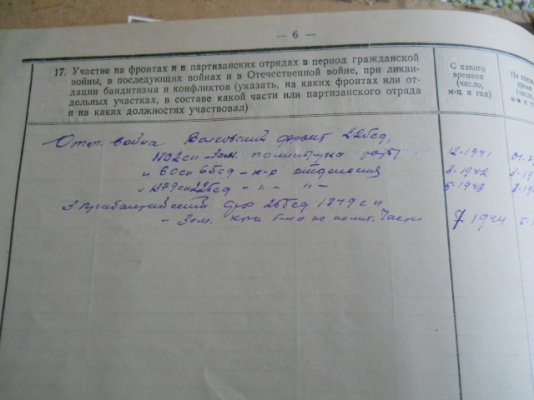 — 6 —
17. Участие на фронтах и в партизанских отрядах в период гражданской
войны, в последующих войнах и в Отечественной войне, при ликви-
дации бандитизма и конфликтов (указать, на каких фронтах или от-
дельных участках, в составе какой части или партизанского отряда
и на каких должностях участвовал)
С какого
времени
(число,
м-ц и год)
По како
врем
(числ
м-ц и
Отеч. война Волховский фронт 225сд,
1102сп - зам. политрука роты 12.1941
" 60сп 65сд - к-р отделения 2.1942
" 225сд - " - " - 1943
3 Прибалтийский 1349сп
- Зам. к-ра б-на по полит. части 7 1944